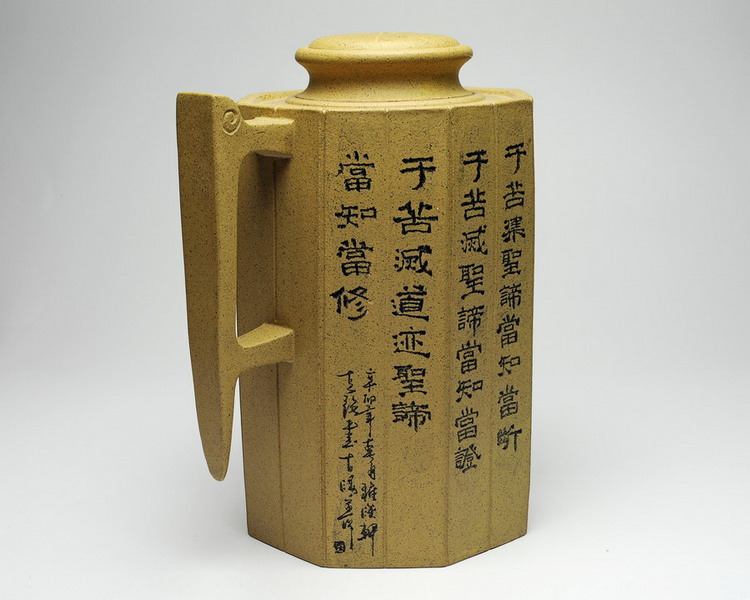 于苦集聖諦當知當斷
于苦滅聖諦當知當證
于苦滅道迹聖諦
當知當修
辛卯年